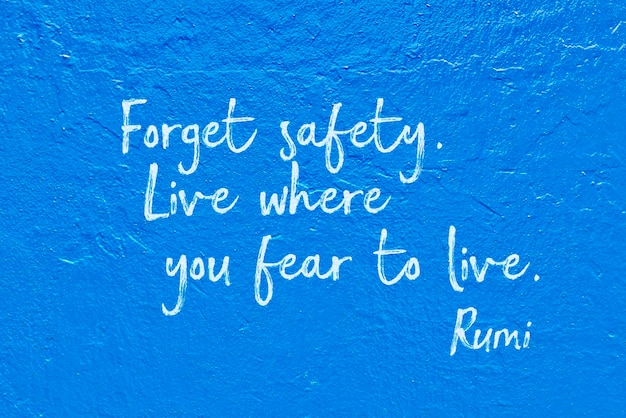 Forget safety.
Live where
you fear to live.
Rumi